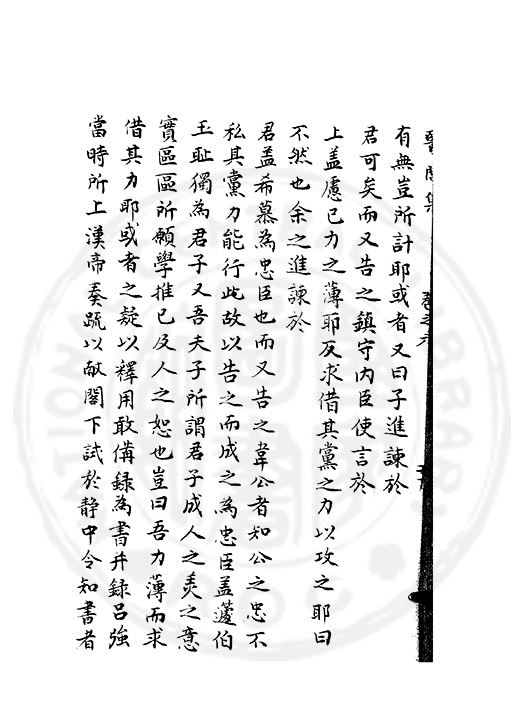 有無豈所計耶或者又曰子進諫於
君可矣而又告之鎮守内臣使言於
上盖慮已力之薄耶反求借其黨之力以攻之耶曰
不然也余之進諫於
君盖希慕為忠臣也而又告之韋公者知公之忠不
私其黨力能行此故以告之而成之為忠臣盖蘧伯
玉恥獨為君子又吾夫子所謂君子成人之美之意
實區區所願學推已及人之恕也豈曰吾力薄而求
借其力耶或者之疑以釋用敢備録為書并録呂強
當時所上漢帝奏疏以敵閣下試於静中令知書者